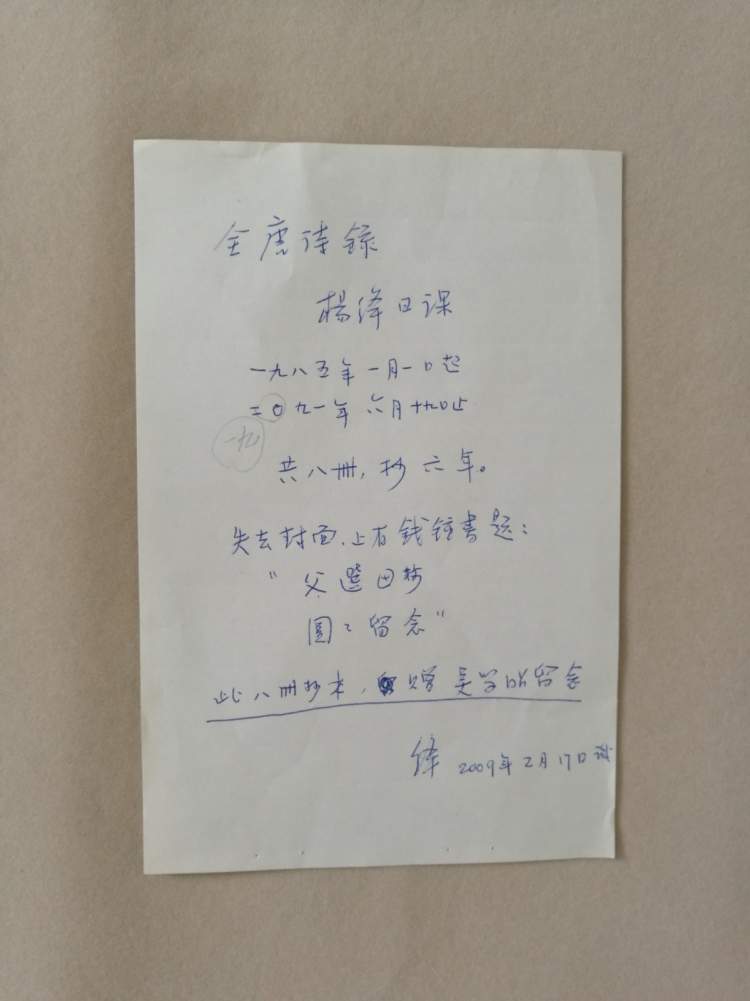 全唐诗録
楊绛日课
一九八五年一月一日起
二〇九一年六月十九日止
一九
共八册,抄六年。
失去封面,上有錢锺書题:
"父選母抄
圆之留念"
此八册抄本,贈吴学昭留念
绛 2009年2月17日誌